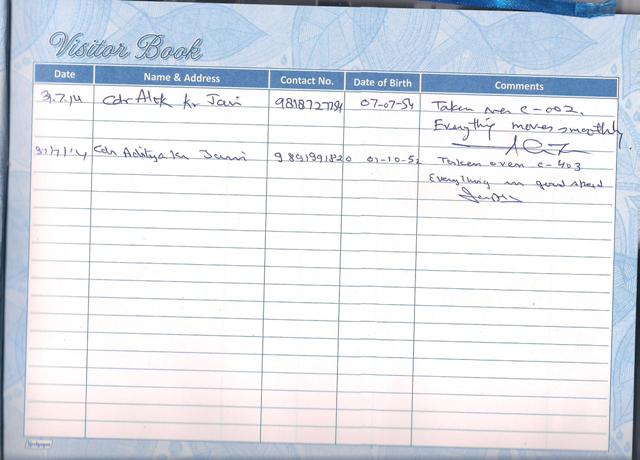 Visitor Book
Date Name & Address Contact No. Date of Birth Comments
3.7.14 Cdr Alok kr Jain 9818727794 07-07-54 Taken over C-002.
Everything moves smoothly.
31/7/14 Cdr Aditya kr Jain 9891991820 01-10-52 Taken over C-403
Everything in good